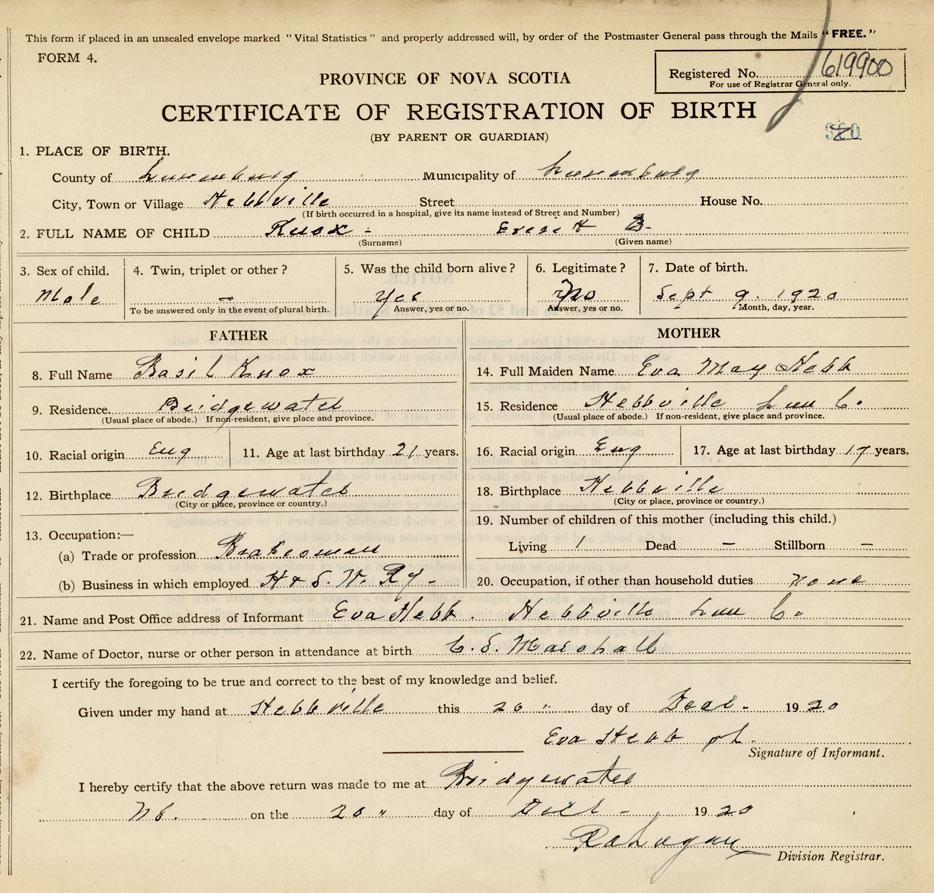 This form if placed in an unsealed envelope marked "Vital Statistics" and properly addressed will, by order of the Postmaster General pass through the Mails "FREE."
FORM 4.
Registered No. 619900
For use of Registrar General only.
PROVINCE OF NOVA SCOTIA
CERTIFICATE OF REGISTRATION OF BIRTH
(BY PARENT OR GUARDIAN)
1. PLACE OF BIRTH.
County of Lunenburg Municipality of Lunenburg
City, Town or Village Hebbville Street House No.
(If birth occurred in a hospital, give its name instead of Street and Number)
2. FULL NAME OF CHILD Knox - B.
(Surname) (Given name)
3. Sex of child. 4. Twin, triplet or other? 5. Was the child born alive? 6. Legitimate? 7. Date of birth.
Male – Yes Sept 9. 1920
To be answered only in the event of plural birth. Answer, yes or no. Answer, yes or no. Month, day, year.
FATHER MOTHER
8. Full Name Basil Knox 14. Full Maiden Name Eva May Hebb
9. Residence. Bridgewater 15. Residence Hebbville Lun Co.
(Usual place of abode.) If non-resident, give place and province. (Usual place of abode.) If non-resident, give place and province.
10. Racial origin Eng 11. Age at last birthday 21 years. 16. Racial origin Eng 17. Age at last birthday 17 years.
12. Birthplace Bridgewater 18. Birthplace Hebbville
(City or place, province or country.) (City or place, province or country.)
13. Occupation:— 19. Number of children of this mother (including this child.)
(a) Trade or profession Brakesman Living 1 Dead – Stillborn –
(b) Business in which employed H & S. W. Ry. 20. Occupation, if other than household duties none
21. Name and Post Office address of Informant Eva Hebb. Hebbville Lun Co.
22. Name of Doctor, nurse or other person in attendance at birth Marshall
I certify the foregoing to be true and correct to the best of my knowledge and belief.
Given under my hand at Hebbville this 20" day of 1920
Eva Hebb
Signature of Informant.
I hereby certify that the above return was made to me at Bridgewater
on the 20" day of 1920
Division Registrar.